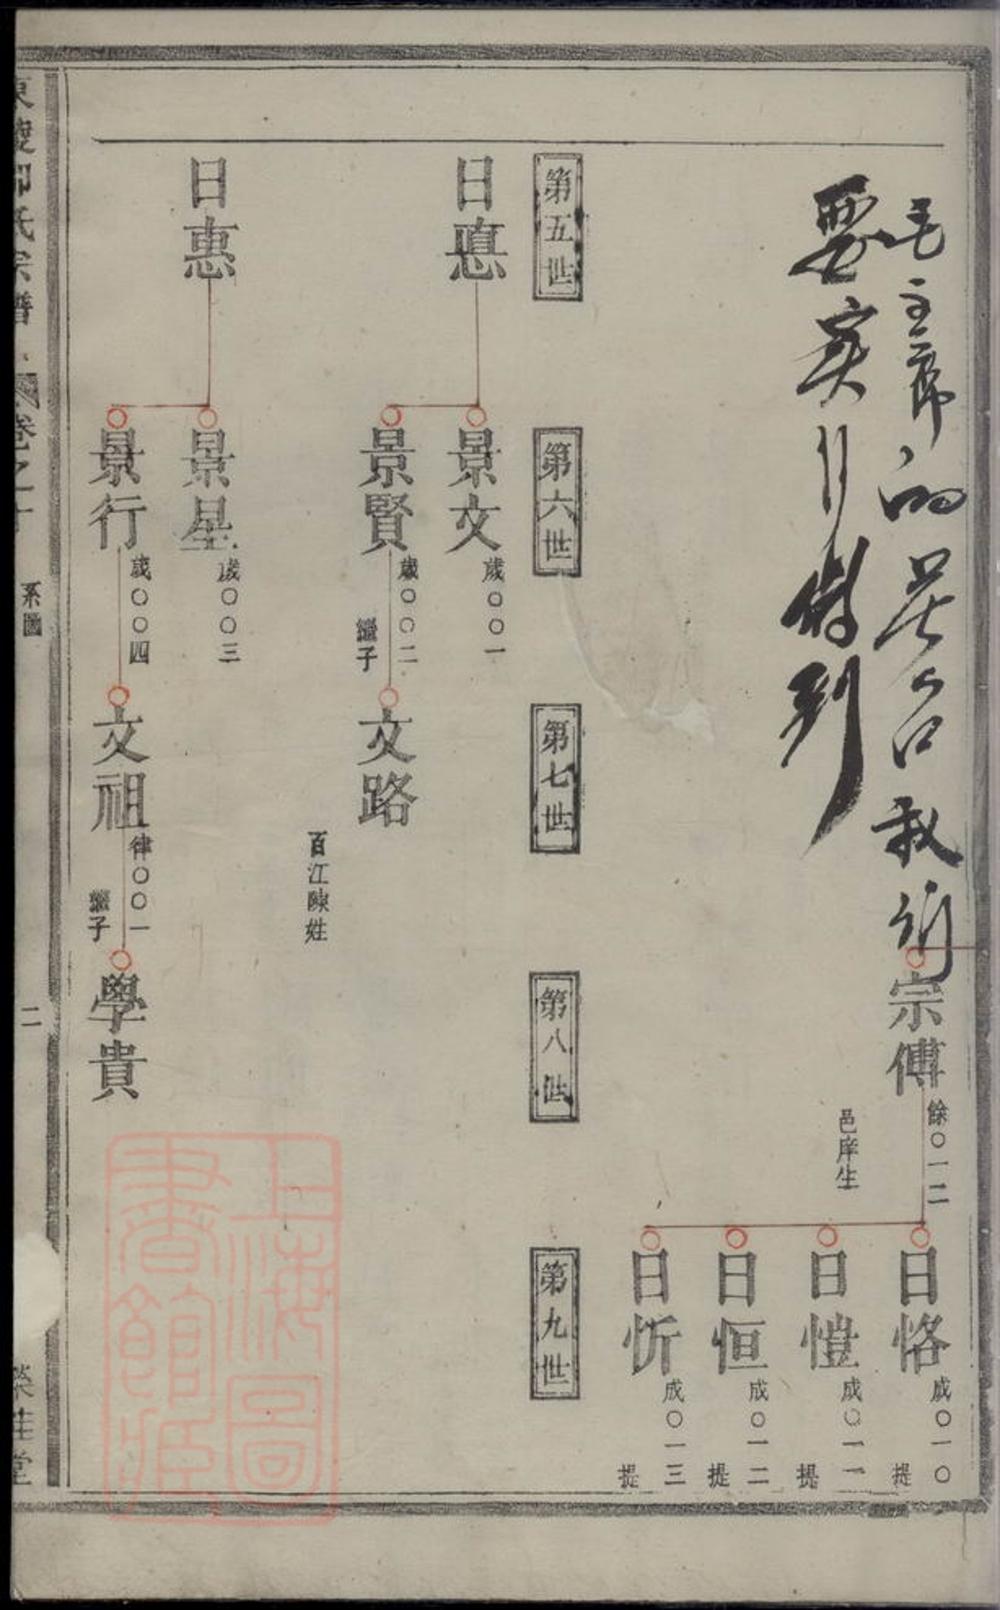 毛主席的
要实行
宗傅
餘〇一二
邑庠生
日恪
成〇一〇
提
日愷
成〇一一
提
日恒
成〇一二
提
日忻
成〇一三
提
第五世
第六世
第七世
第八世
第九世
日惪
景文
歲〇〇一
景賢
歲〇〇二
繼子
文路
百江陳姓
日惠
景星
歲〇〇三
景行
歲〇〇四
文祖
律〇〇一
繼子
學貴
氏宗譜
卷之十
系圖
二
堂
上海圖
書館藏